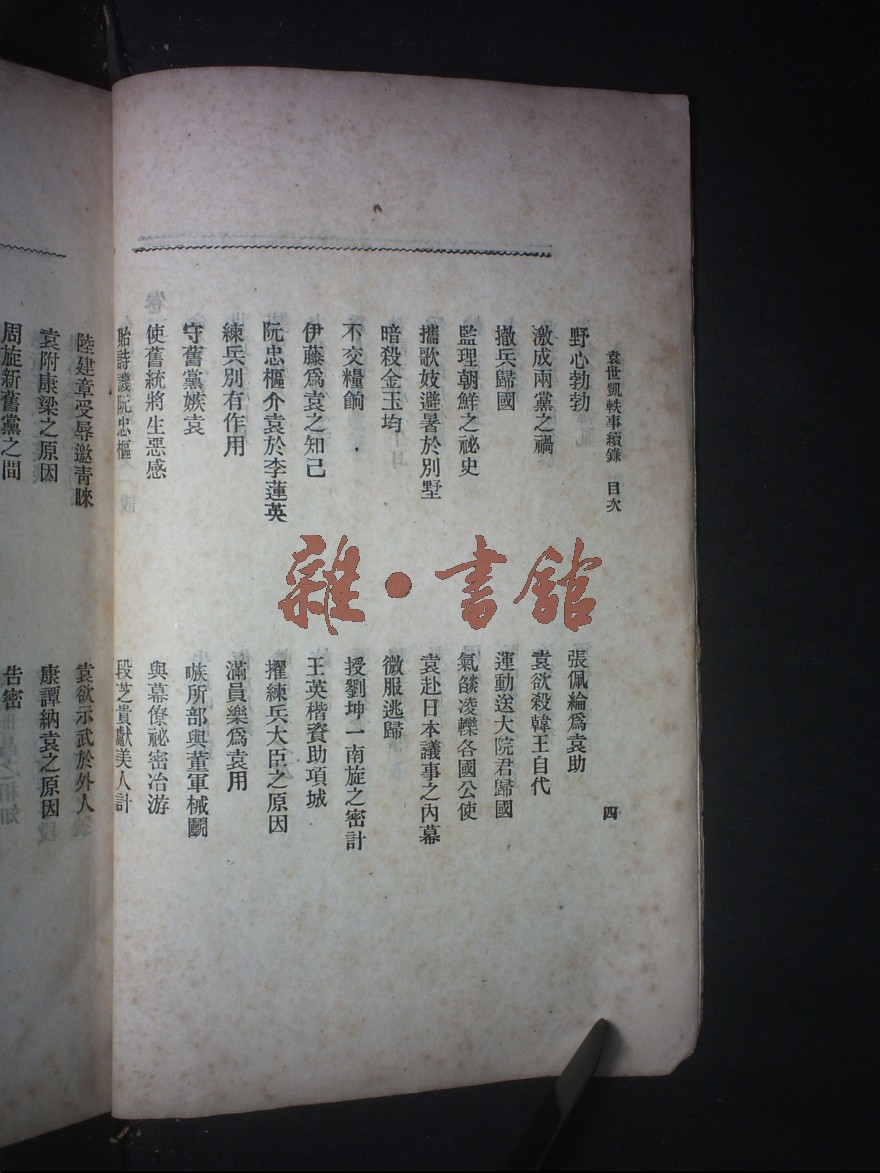 袁世凱軼事續錄　目次　四
野心勃勃　張佩綸爲袁助
激成兩黨之禍　袁欲殺韓王自代
撤兵歸國　運動送大院君歸國
監理朝鮮之祕史　氣燄凌轢各國公使
攜歌妓避暑於別墅　袁赴日本議事之內幕
暗殺金玉均　微服逃歸
不交糧餉　授劉坤一南旋之密計
伊藤爲袁之知己　王英楷資助項城
阮忠樞介袁於李蓮英　擢練兵大臣之原因
練兵別有作用　滿員樂爲袁用
守舊黨嫉袁　嗾所部與董軍械鬭
使舊統將生惡感　與幕僚祕密冶游
貽詩譏阮忠樞　段芝貴獻美人計
陸建章受辱邀青睞　袁欲示武於外人
袁附康梁之原因　康譚納袁之原因
周旋新舊黨之間　告密
雜·書館